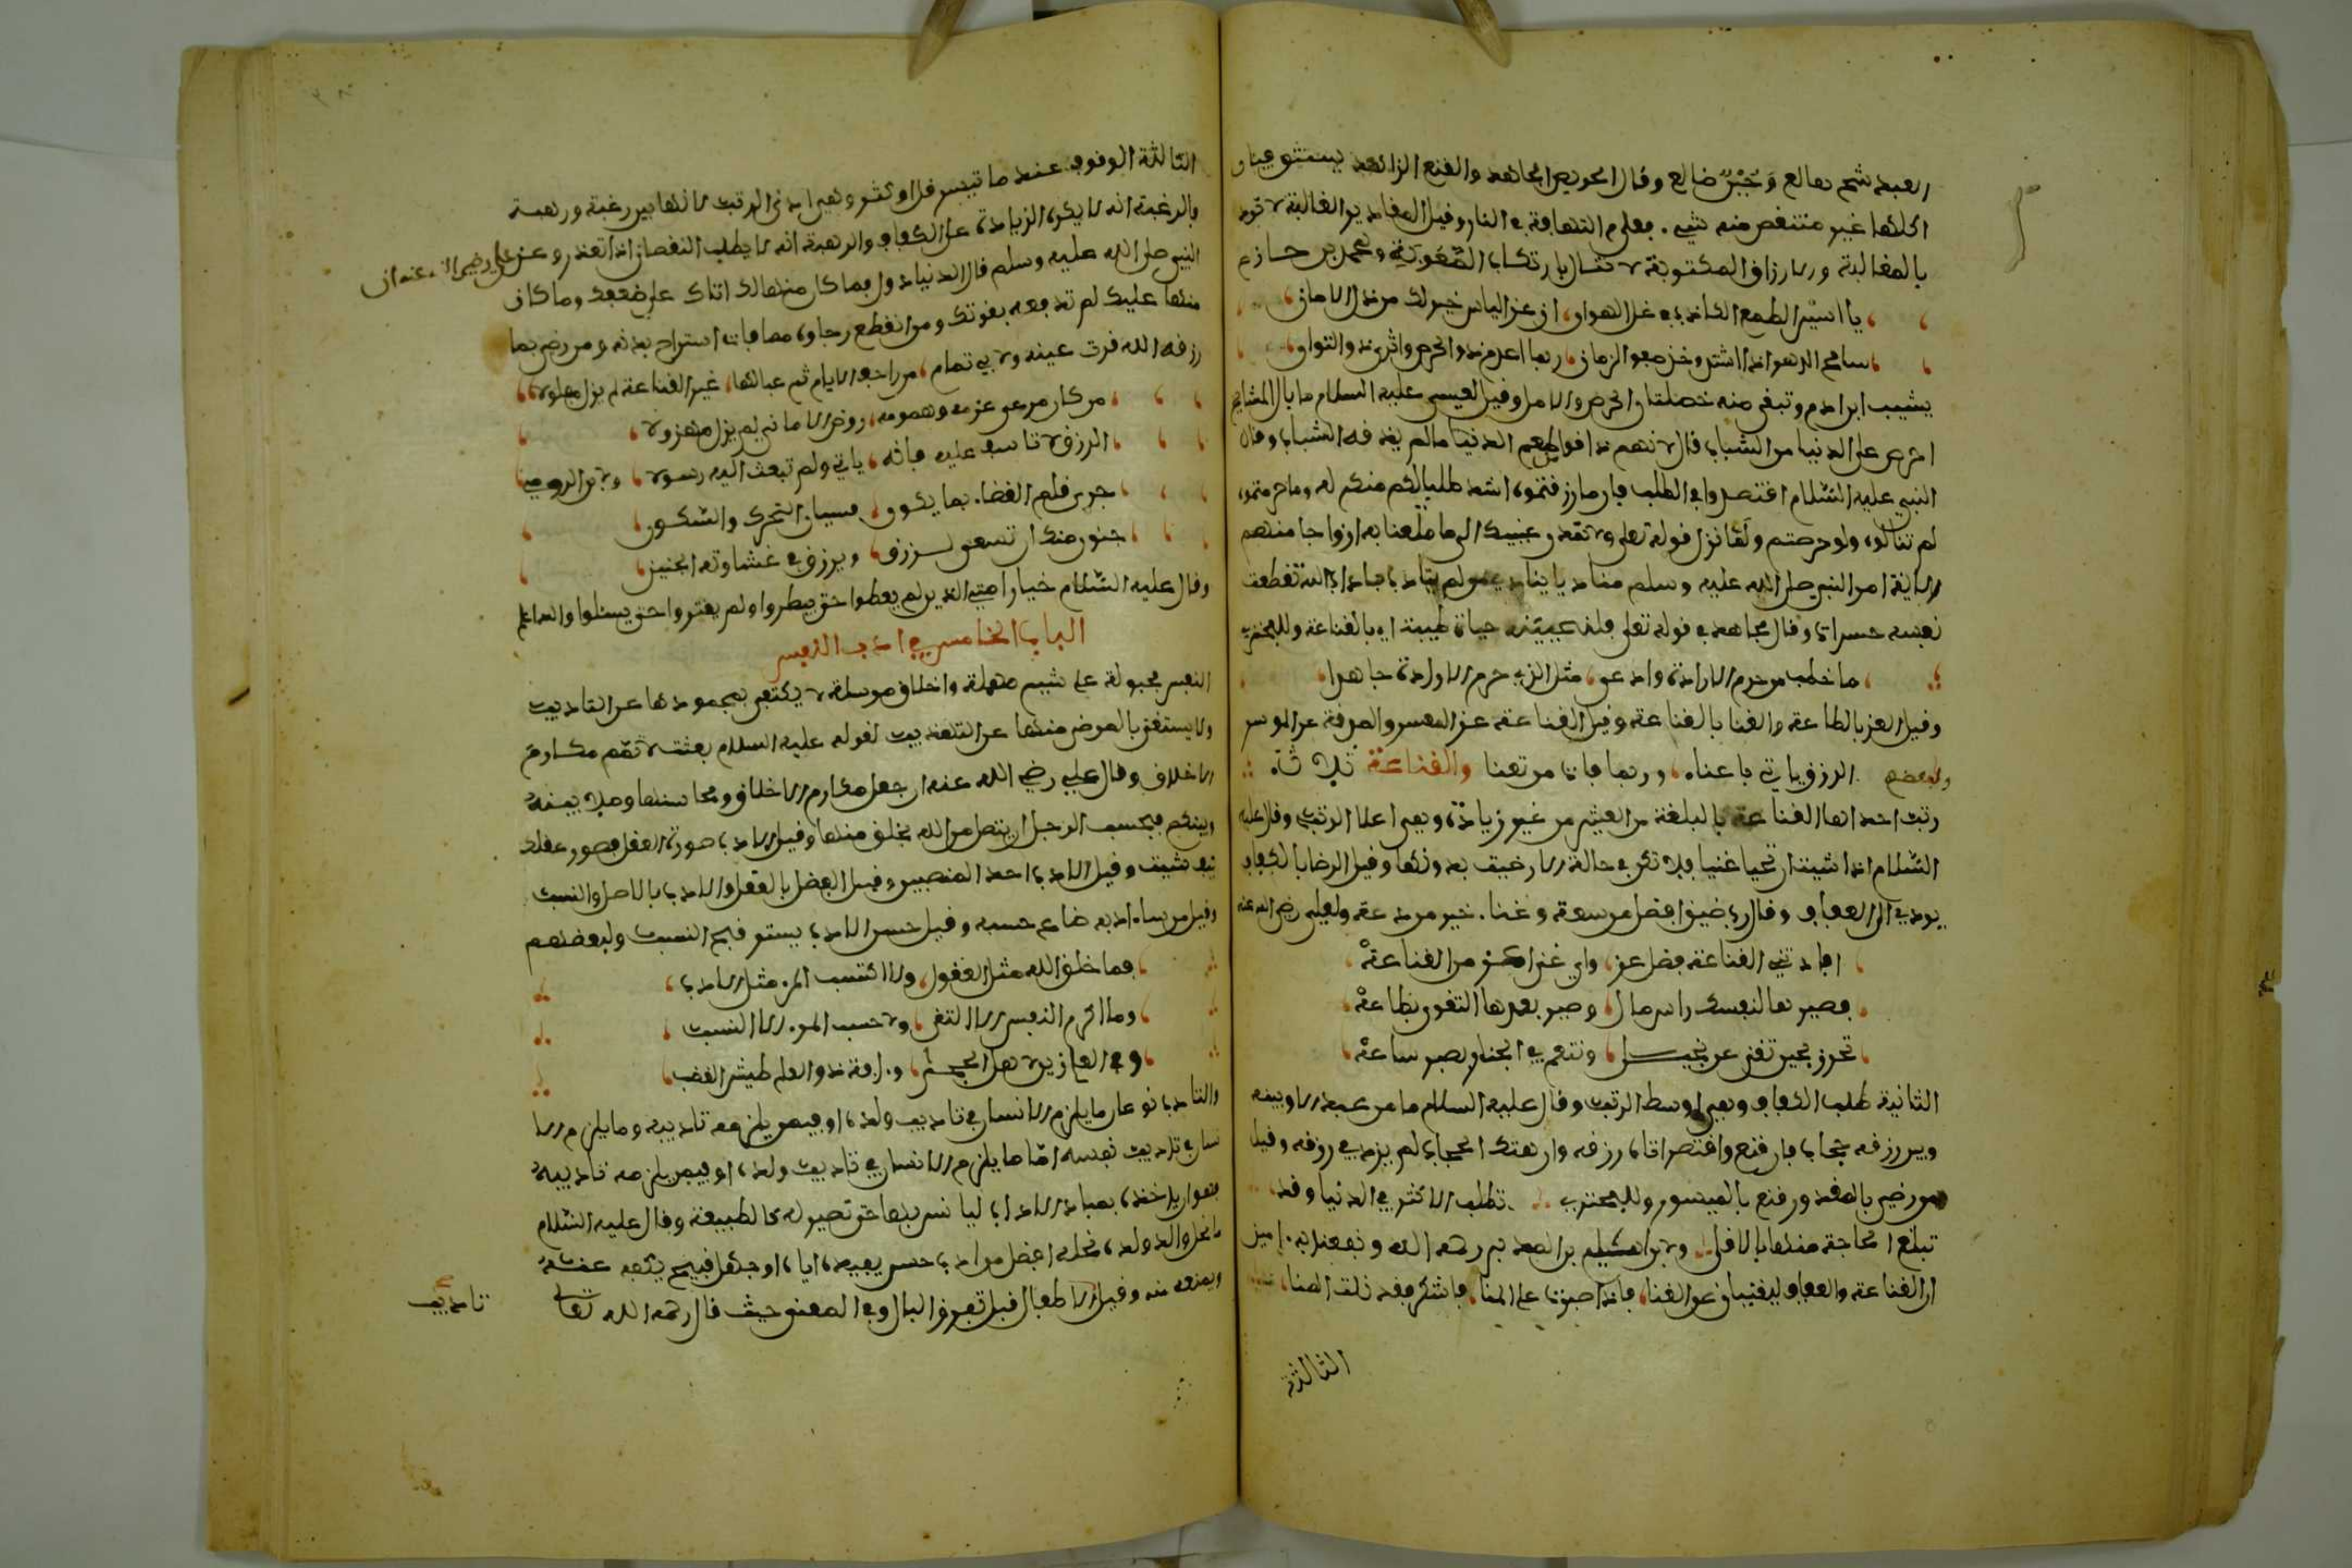 العبد شح هالع وجبن خالع وقال الحريص الجاهد والقنع الزاهد يستوفيان
اكلهما غير منتقص منه شيء فعلام التهافت في النار وقيل المقادير الغالبة لا تدرك
بالمغالبة والارزاق المكتوبة لا تنال بارتكاب الصعوبة ومحمد بن حازم
يا اسير الطمع الكاذب في غل الهوان ان عز الياس خير لك من ذل الامان
سامح الدهر اذا اشتد وخذ صفو الزمان ربما اعدم ذو الحرص واثرى ذو التوان
يشيب ابن ادم وتبقى منه خصلتان الحرص والامل وقيل لعيسى عليه السلام ما بال المشايخ
احرص على الدنيا من الشباب قال لانهم ذاقوا من طعم الدنيا ما لم يذقه الشباب وقال
النبي عليه السلام اقتصدوا في الطلب فان ما رزقتموه اشد طلبا لكم منكم له وما حرمتموه
لم تنالوه ولو حرصتم ولما نزل قوله تعلى ولا تمدن عينيك الى ما متعنا به ازواجا منهم
الاية امر النبي صلى الله عليه وسلم مناديا ينادي من لم يتادب بادب الله تقطعت
نفسه حسرات وقال مجاهد في قوله تعلى فلنحيينه حياة طيبة اي بالقناعة وللبحتري
ما خطب من حرم الارادة وادعى مثل الذي حرم الارادة جاهدا
وقيل العز بالطاعة والغنا بالقناعة وقيل القناعة عز المعسر والصدقة حرز الموسر
ولبعضهم الرزق ياتي با عناه وربما فات من تعنا والقناعة ثلاثة
رتب احداها القناعة بالبلغة من العيش من غير زيادة وهي اعلا الرتب وقال عليه
السلام اذا شيت ان تحيا غنيا فلا تكن في حالة الا رضيت بدونها وقيل الرضا بالكفاف
يودي الى العفاف وقال رب ضيق افضل من سعة وعنا خير من دعة ولعلي رضي الله عنه
افادتني القناعة فضل عز واي غنى اعز من القناعة
فصيرها لنفسك راس مال وصير بعدها التقوى بضاعة
تحرز بحين تغنى عن بخيل وتنعم في الجنان بصبر ساعة
الثانية طلب الكفاف وهي اوسط الرتب وقال عليه السلام ما من عبد الا وبينه
وبين رزقه حجاب فان قنع واقتصد اتاه رزقه وان هتك الحجاب لم يزد في رزقه وقيل
من رضي بالمقدور قنع بالميسور وللبحتري تطلب الاكثر في الدنيا وقد
تبلغ الحاجة منها بالاقل ولابراهيم بن المدبر رحمه الله ونفعنا به امين
ان القناعة والعفاف ليغنيان عن الغنا فاذا صبرت على المنا فاشكر فقد نلت المنا
الثالثة
الثالثة الوقوف عند ما تيسر قل او كثر وهي ادنى الرتب لانها بين رغبة ورهبة
فالرغبة انه لا يكره الزيادة على الكفاف والرهبة انه لا يطلب النقصان اذا تعذر وعن علي رضي الله عنه ان
النبي صلى الله عليه وسلم قال الدنيا دول فما كان منها لك اتاك على ضعفك وما كان
منها عليك لم تدفعه بقوتك ومن انقطع رجاوه مما فات استراح بدنه ومن رضي بما
رزقه الله قرت عينه ولابي تمام من زاحف الايام ثم عبا لها غير القناعة لم يزل مفلولا
من كان مرعى عزمه وهمومه روض الاماني لم يزل مهزولا
الرزق لا تاسف عليه فانه ياتي ولم تبعث اليه رسولا ولابن الرومي
جرى قلم القضاء بما يكون فسيان التحرك والسكون
جنون منك ان تسعى لرزق ويرزق في غشاوته الجنين
وقال عليه السلام خيار امتي الذين لم يعطوا حتى يبطروا ولم يقتروا حتى يسئلوا والله اعلم
الباب الخامس في ادب النفس
النفس مجبولة على شيم مهملة واخلاق مرسلة لا يكتفى بمحمودها عن التاديب
ولا يستغنى بالمرضي منها عن التهذيب لقوله عليه السلام بعثت لاتمم مكارم
الاخلاق وقال علي رضي الله عنه ان جعل مكارم الاخلاق ومحاسنها وصلا بينه
وبينكم فحسب الرجل ان يتصل من الله بخلق منها وقيل الادب صورة العقل فصور عقلك
كيف شيت وقيل الادب احد المنصبين وقيل الفضل بالعقل والادب لا بالاصل والنسب
وقيل من ساء ادبه ضاع حسبه وقيل حسن الادب يستر قبح النسب ولبعضهم
فما خلق الله مثل العقول ولا اكتسب المرء مثل الادب
وما اكرم النفس الا التقى ولا حسب المرء الا النسب
وفي العلم زين لاهل الحجى وءافة ذو العلم طيش الغضب
والتاديب نوعان ما يلزم الانسان في تاديب ولده او فيمن يلزمه تاديبه وما يلزم الا
نسان في تاديب نفسه اما ما يلزم الانسان في تاديب ولده او فيمن يلزمه تاديبه
فهو ان ياخذه بمبادي الاداب ليانس بها حتى تصير له كالطبيعة وقال عليه السلام
ما نحل والد ولده نحلة افضل من ادب حسن يفيده اياه او جهل قبيح يكفه عنه
ويمنعه منه وقيل الاطفال قبل تفرق البال وفي المعنى حيث قال رحمه الله تعالى
تاديب